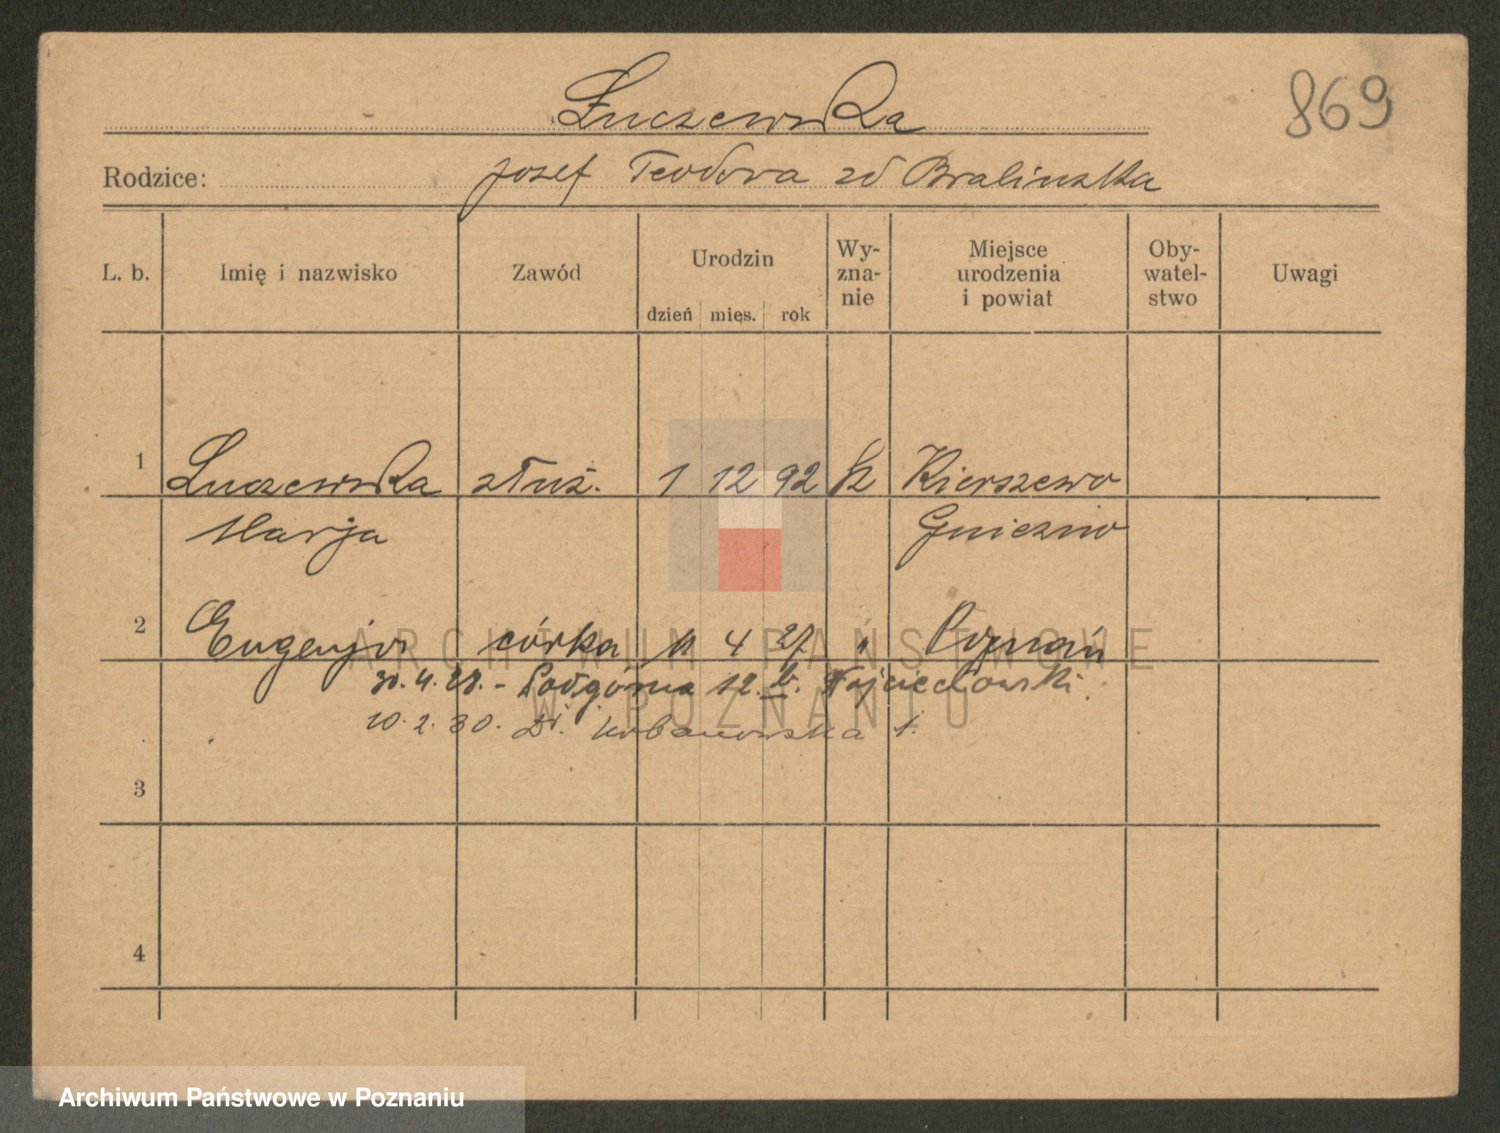 Łuczewska
869
Rodzice: Josef Teodora zd Bralinska
L. b. Imię i nazwisko Zawód Urodzin dzień mies. rok Wy-zna-nie Miejsce urodzenia i powiat Oby-watel-stwo Uwagi
1 Łuczewska służ. 1 12 92 k Kierszewo
Marja Gniezno
2 Eugenja córka 4 27 " Poznań
30.4.28. - Podgórna 12. b. Wojciechowski
10.2.30.
3
4
ARCHIWUM PAŃSTWOWE
W POZNANIU
Archiwum Państwowe w Poznaniu